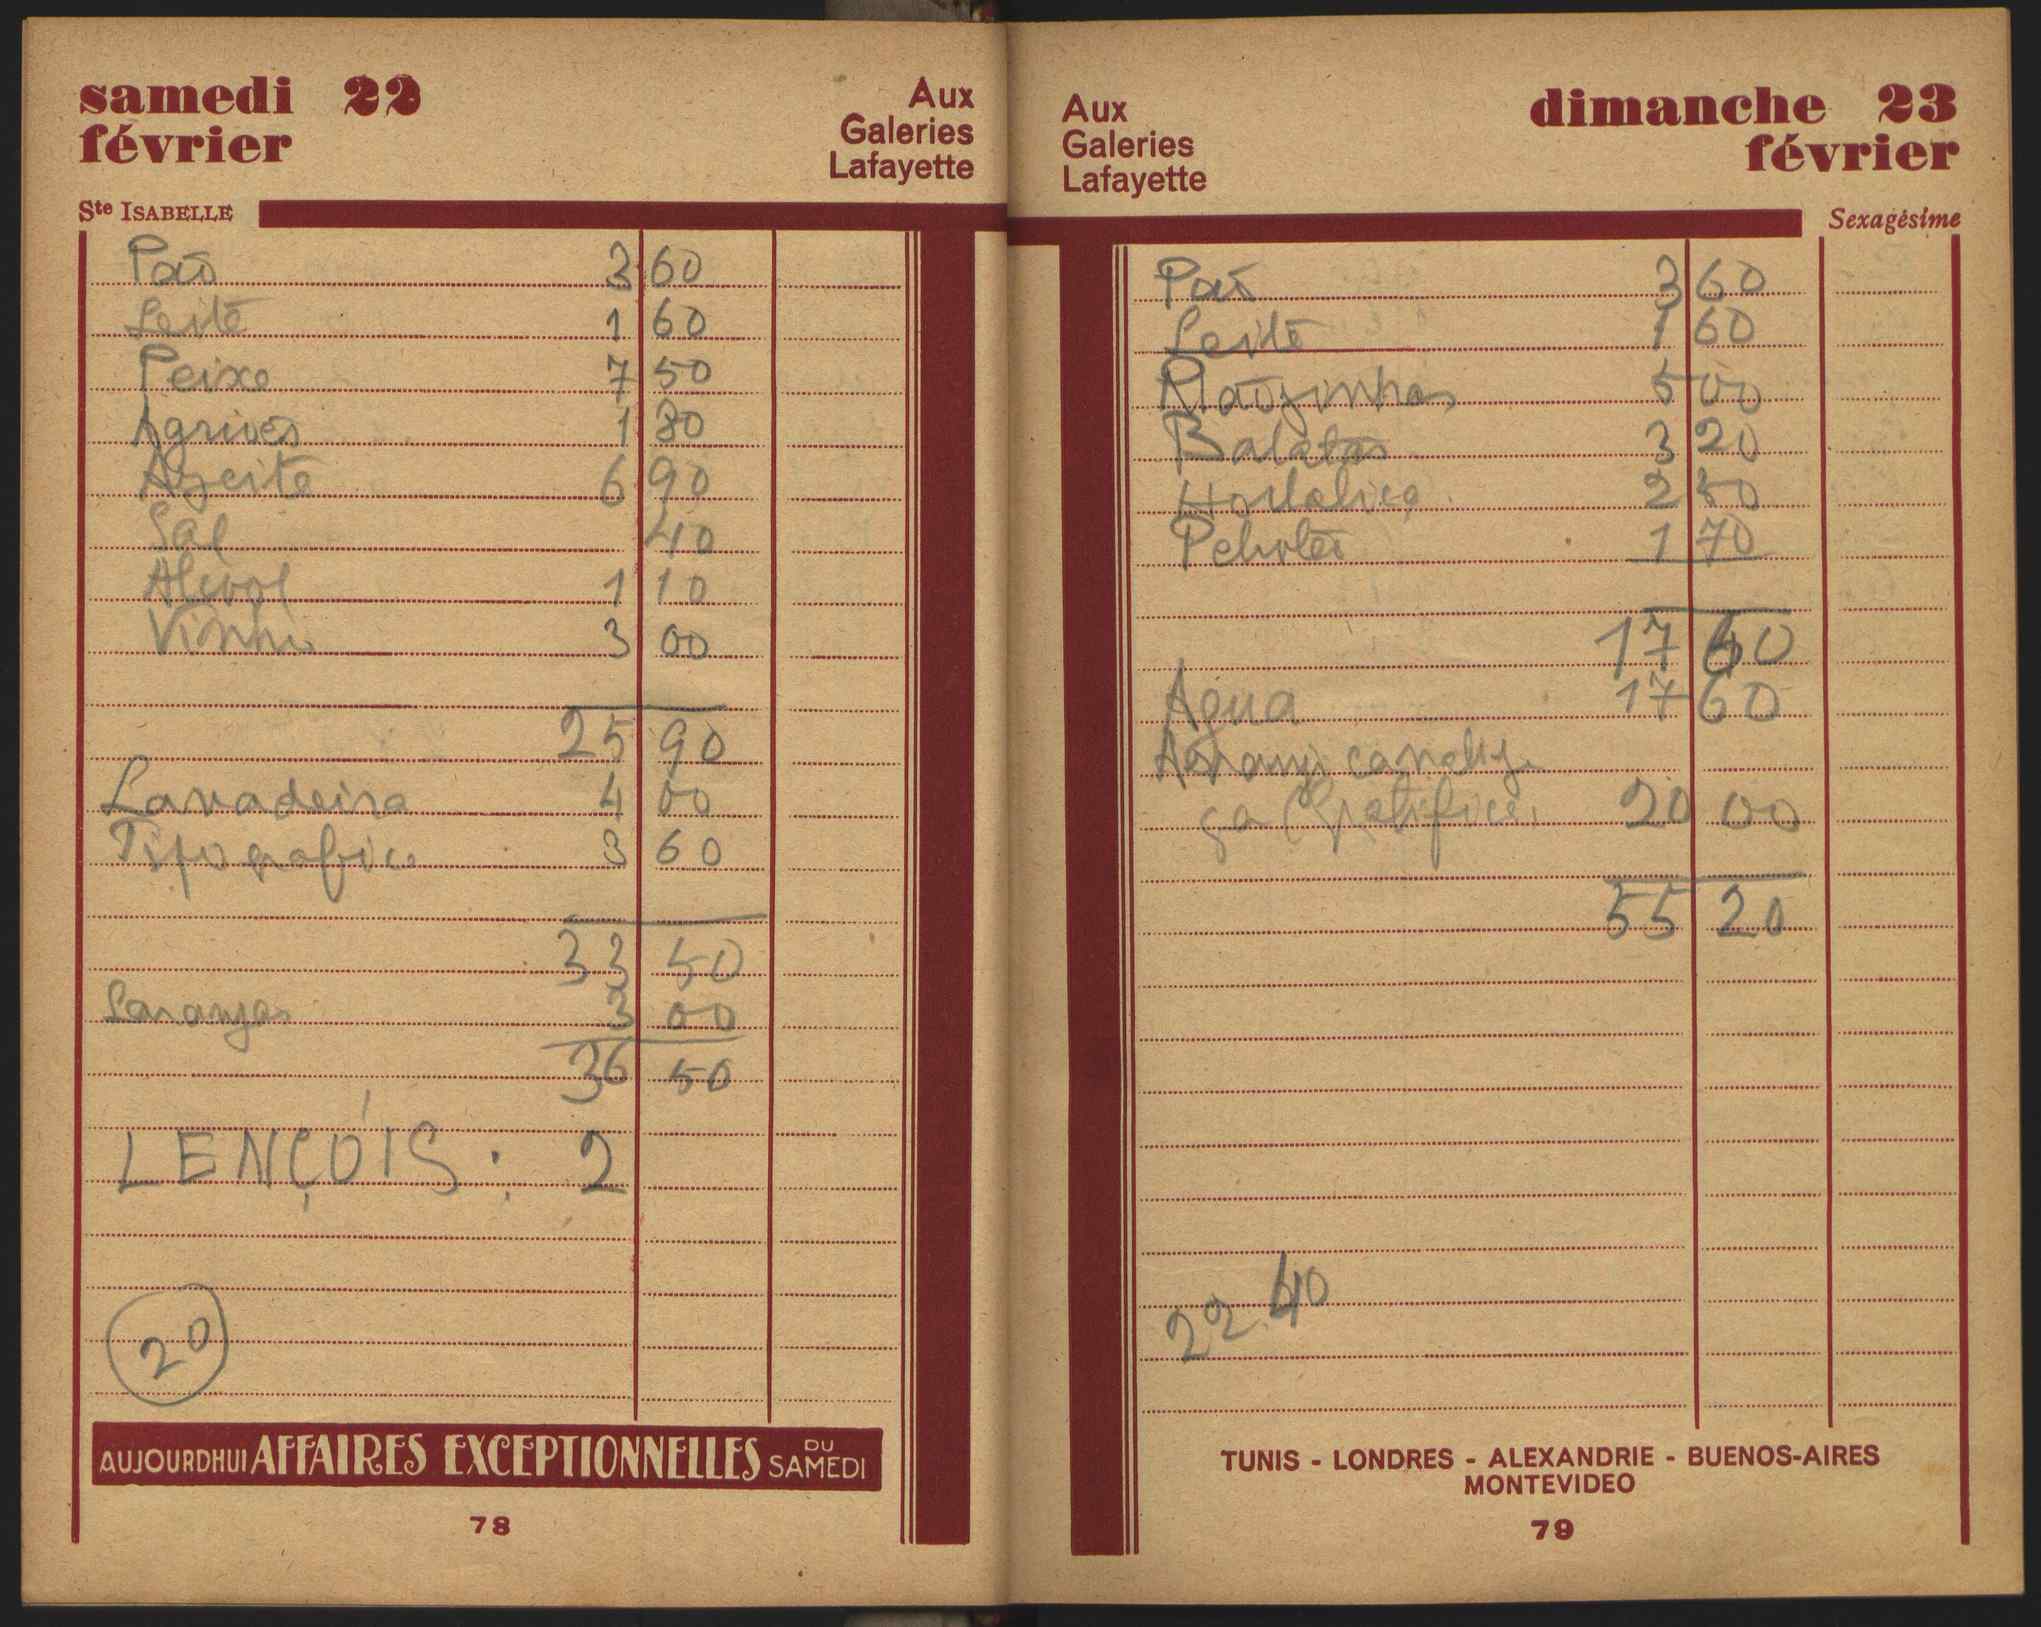 samedi 22
février
Aux
Galeries
Lafayette
Ste ISABELLE
Pão 3 60
Leite 1 60
Peixe 7 50
Agriões 1 80
Azeite 6 90
Sal 40
Alcool 1 10
Vinho 3 00
25 90
Lavadeira 4 00
Tipografico 3 60
33 50
Laranjas 3 00
36 50
LENÇÓIS: 2
20
AUJOURDHUI AFFAIRES EXCEPTIONNELLES DU SAMEDI
78
Aux
Galeries
Lafayette
dimanche 23
février
Sexagésime
Pão 3 60
Leite 1 60
Mãozinhas 5 00
Batatas 3 20
Hortaliça 2 50
1 70
17 60
Agua 17 60
Arranjo canaliz.
20 00
55 20
22.40
TUNIS - LONDRES - ALEXANDRIE - BUENOS-AIRES
MONTEVIDEO
79